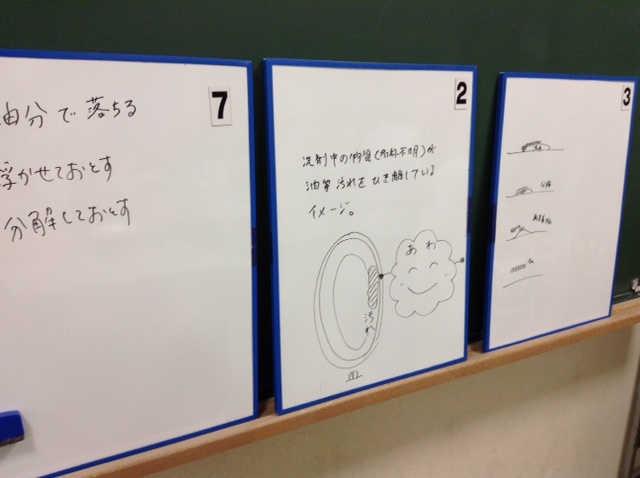 7
油分で落ちる
浮かせておとす
分解しておとす
2
洗剤中の物質(名称不明)が
油質汚れをひき離している
イメージ。
あわ
汚れ
皿
3